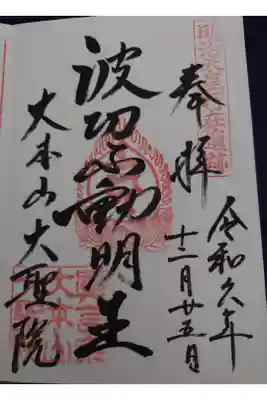 奉拝
令和六年
十二月廿五日
波切不動明王
大本山大聖院